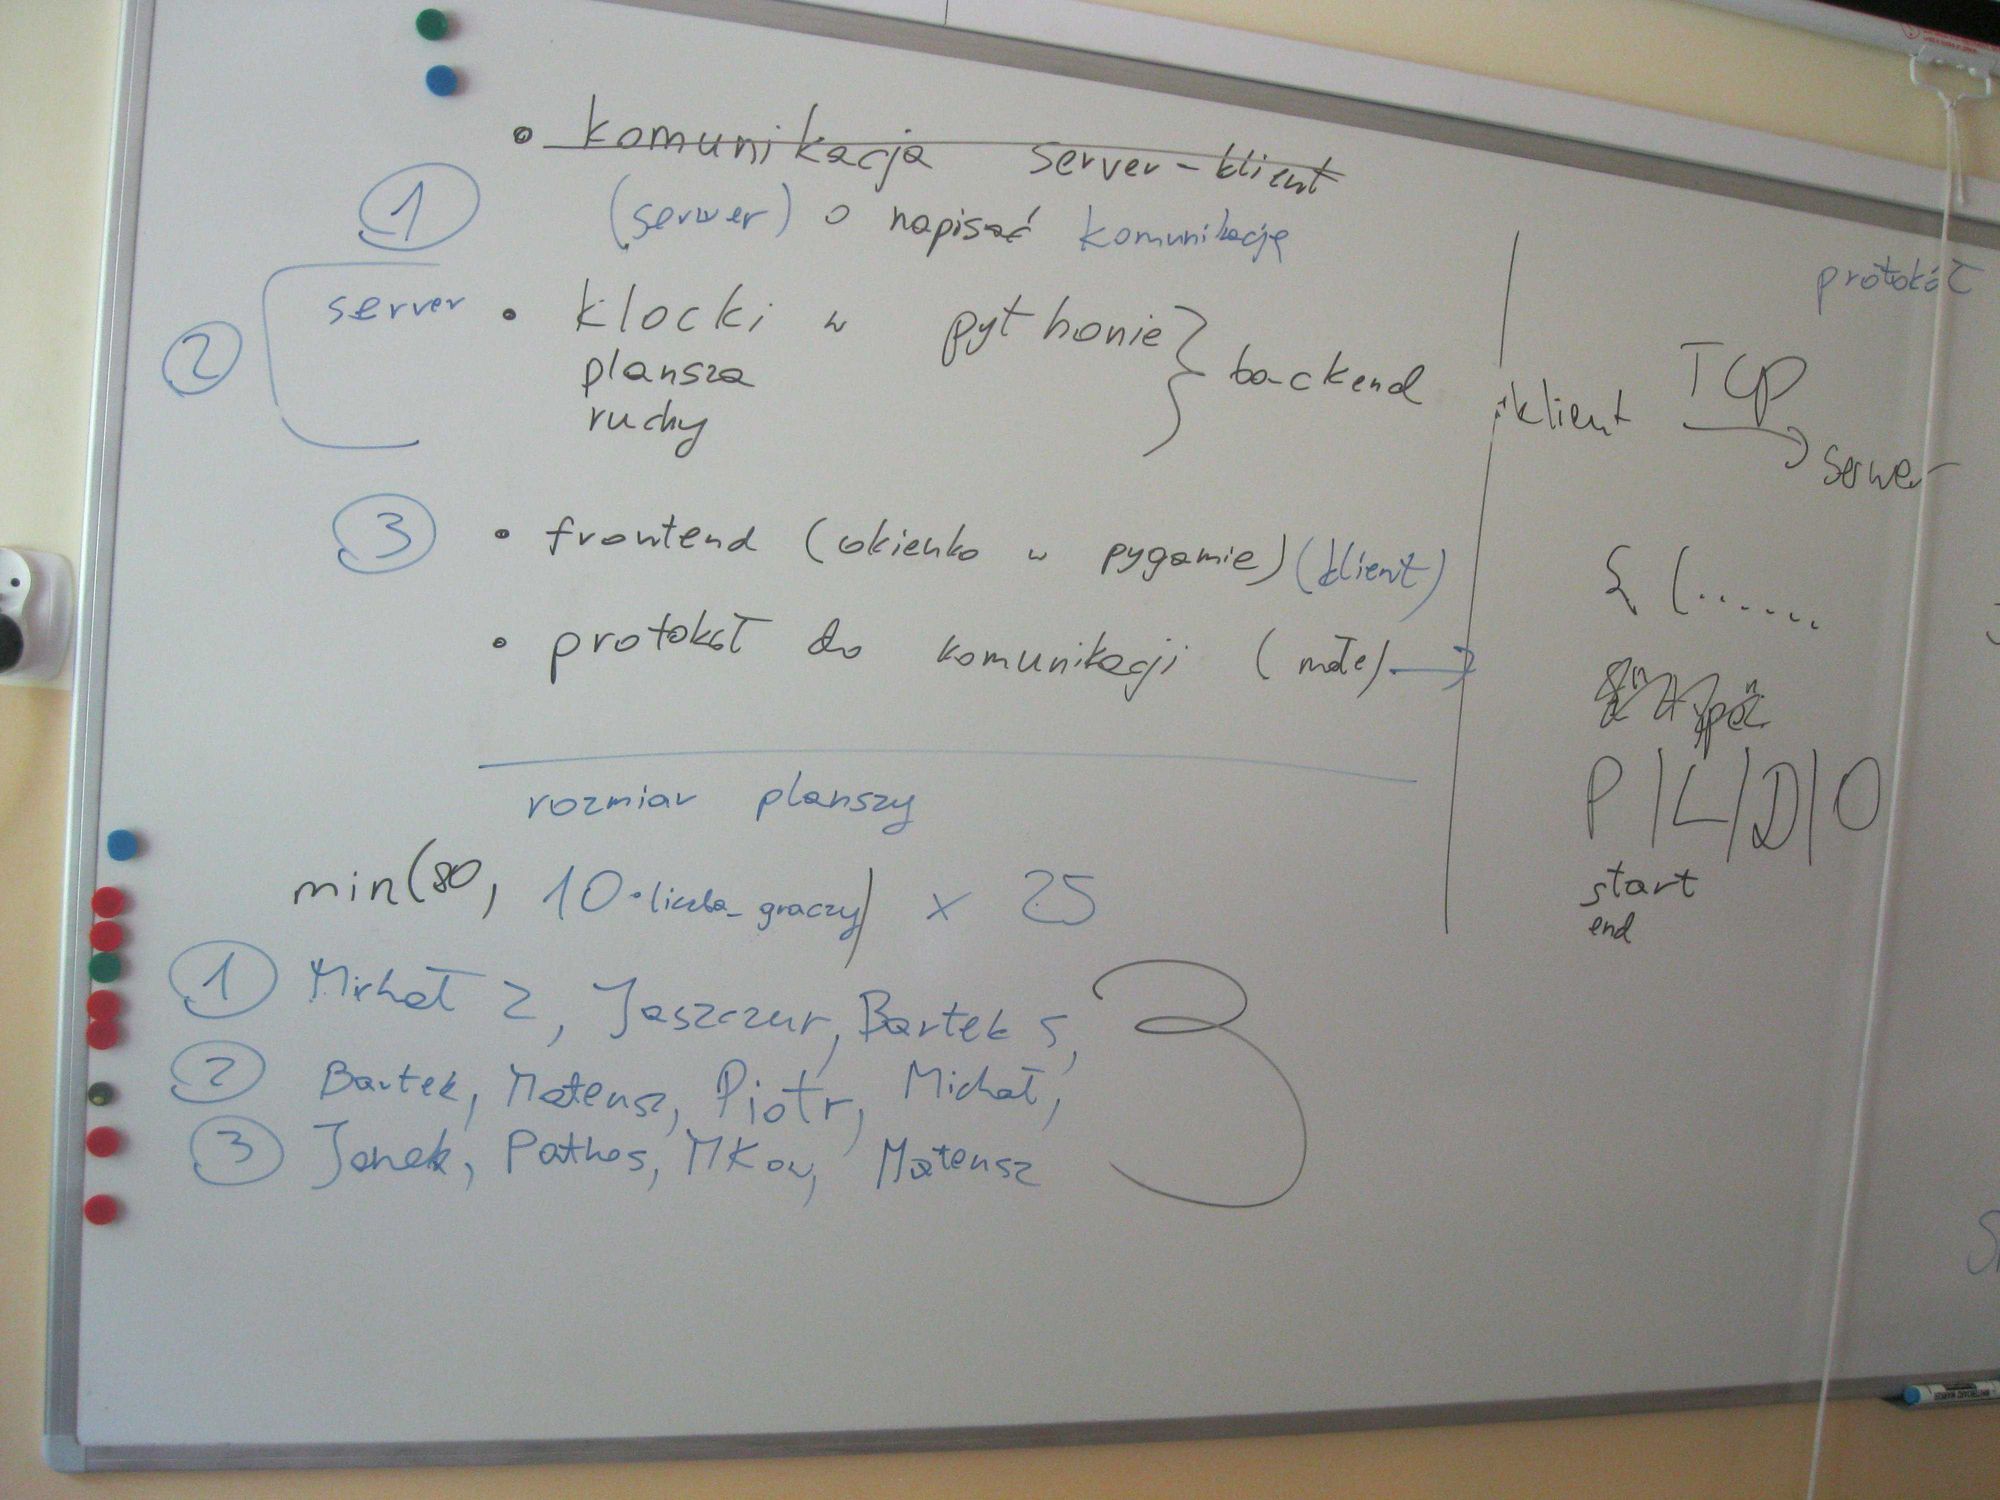 • komunikacja server-klient
1 (serwer) o napisać komunikację
2 server • klocki w pythonie } backend
plansza
ruchy
3 • frontend (okienko w pygamie) (klient)
• protokół do komunikacji (małe) →
rozmiar planszy
min(80, 10·liczba_graczy) x 25
1 Michał Z, Jaszczur, Bartek S,
2 Bartek, Mateusz, Piotr, Michał,
3 Janek, Pathos, MKow, Mateusz
3
protokół
klient TCP → serwer
{ (......
P|L|D|O
start
end